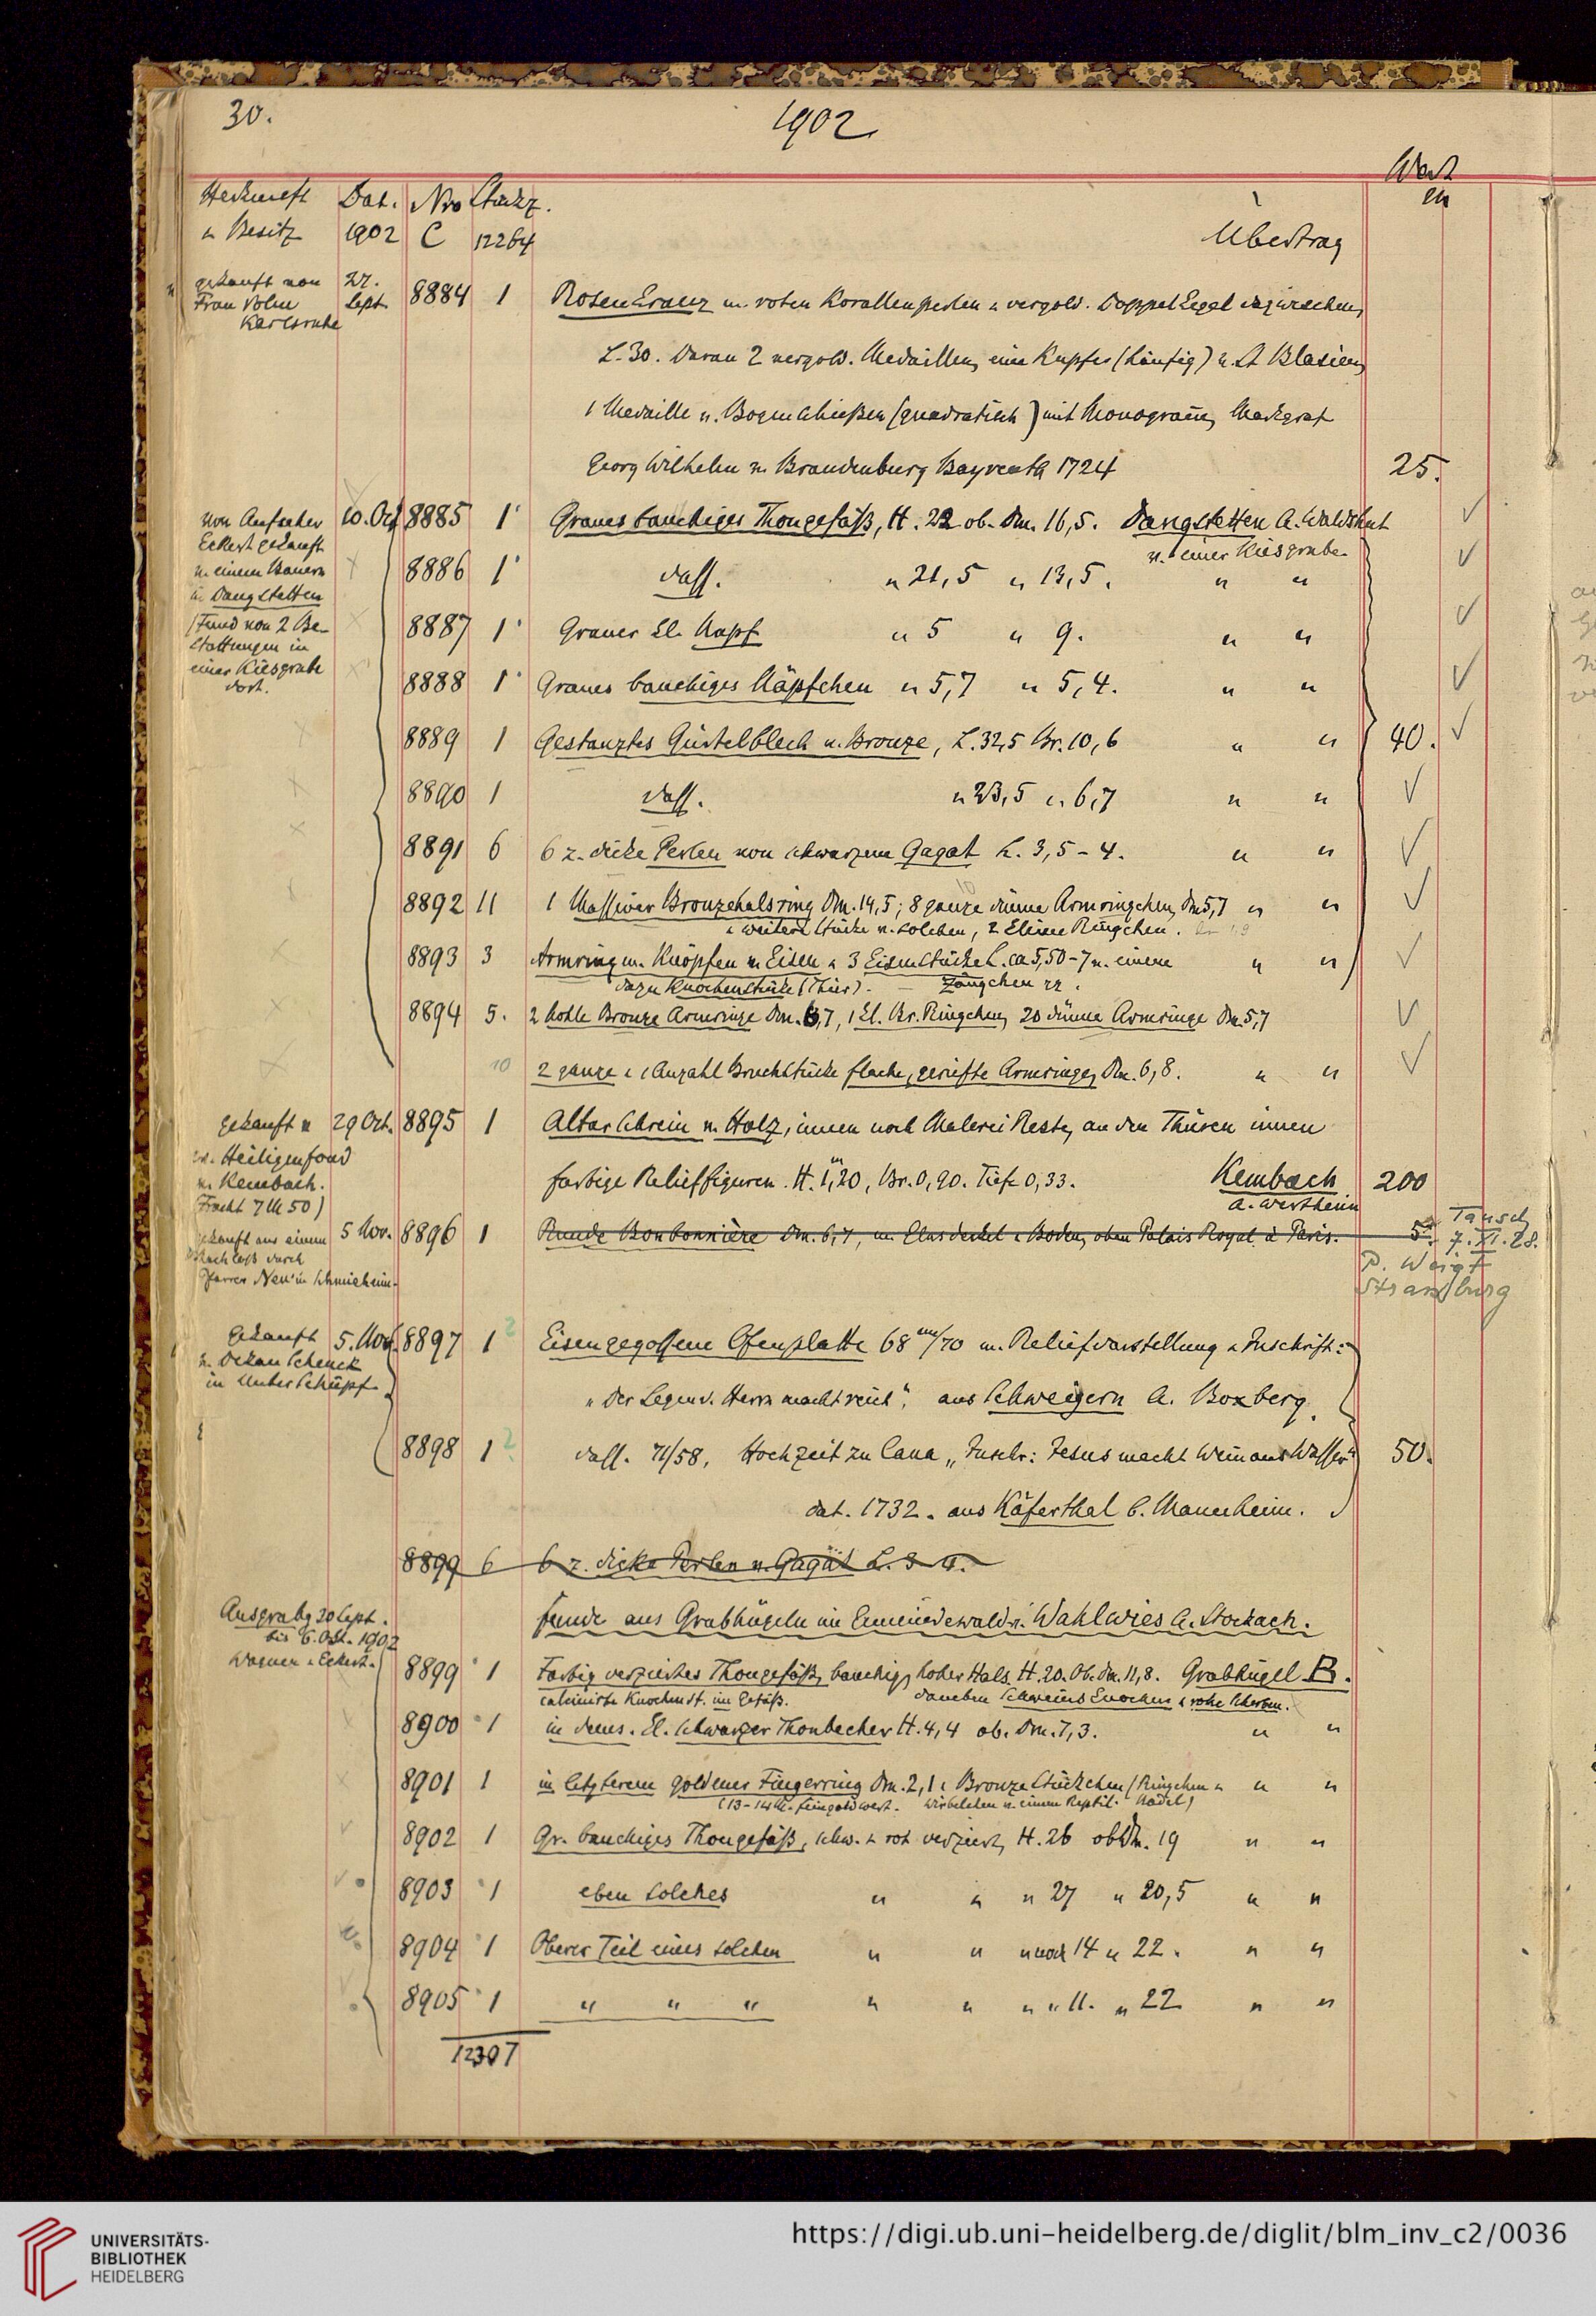 30.
1902
Wert
Herkunft Dat. Nro Stückz. M
u Besitz 1902 C 12264 Übertrag
gekauft von 27. 8884 1 Rosenkranz m. roten Korallenperlen u vergold. Doppelkegel dazwischen,
Frau Volm Sept.
Karlsruhe
L. 30. Daran 2 vergold. Medaillen, eine Kupfer (häufig) v. St Blasien,
1 Medaille v. Bogenschießen (quadratisch) mit Monogram̄, Markgraf
Georg Wilhelm v. Brandenburg Bayreuth 1724 25.
von Aufseher 10. Oct 8885 1 Graues bauchiges Thongefäß, H. 22 ob. Dm. 16,5. Dangstetten A. Waldshut
Eckert gekauft v. einer Kiesgrube
v. einem Bauern 8886 1 dass. " 21,5 " 13,5. " "
in Dangstetten
(Fund von 2 Be- 8887 1 Grauer kl. Napf " 5 " 9. " "
stattungen in
einer Kiesgrube 8888 1 Graues bauchiges Näpfchen " 5,7 " 5,4. " "
dort.
8889 1 Gestanztes Gürtelblech v. Bronze, L. 32,5 Br. 10,6 " " 40.
8890 1 dass. " 23,5 " 6,7 " "
8891 6 6 z. dicke Perlen von schwarzem Gagat L. 3,5 - 4. " "
8892 11 1 Massiver Bronzehalsring Dm. 14,5; 8 ganze dünne Armringchen, Dm 5,7 " "
u weitere Stücke v. solchen, 2 kleine Ringchen.
8893 3 Armring m. Knöpfen v. Eisen u 3 Eisenstücke L. ca 5,50 - 7 v. einem " "
dazu Knochenstücke (Thier). — Zängchen
8894 5. 2 hohle Bronze Armringe Dm. 6,7, 1 kl. Br. Ringchen, 20 dünne Armringe Dm. 5,7
10 2 ganze u 1 Anzahl Bruchstücke flache, geriefte Armringe, Dm. 6,8. " "
gekauft v 29 Oct. 8895 1 Altarschrein v. Holz, innen noch Malerei Reste, an den Thüren innen
ev. Heiligenfond
v. Kembach. farbige Relieffiguren. H. 1,20, Br. 0,90. Tiefe 0,33. Kembach 200
Fracht 7 M 50) A. Wertheim
gekauft aus einem 5 Nov. 8896 1 Runde Bonbonnière Dm. 6,7, m. Glasdeckel u Boden, oben Palais Royal à Paris. 5. Tausch
Nachlaß durch 7. XI. 28.
Pfarrer Neu in Schmieheim. P. Weigt
Strassburg
Gekauft 5. Nov. 8897 1 Eisengegossene Ofenplatte 68 cm/70 m. Reliefdarstellung u Inschrift:
v. Dekan Schenck
in Unterschüpf. "Der Segen d. Herrn macht reich", aus Schweigern A. Boxberg.
8898 1 dass. 71/58, Hochzeit zu Cana „Inschr: Jesus macht Wein aus Wasser" 50.
dat. 1732. aus Käferthal b. Mannheim.
8899 6 6 z. dicke Perlen v. Gagat L. 3 - 4.
Ausgrabg 30 Sept. Funde aus Grabhügeln im Gemeindewald v. Wahlwies A. Stockach.
bis 6. Okt. 1902
Wagner u Eckert. 8899 1 Farbig verziertes Thongefäß, bauchig, hoher Hals. H. 20. Ob. Dm. 11,8. Grabhügel B.
calcinirte Knochenst. im Gefäß. daneben Schweinsknochen u rohe Scherben.
8900 1 in dems. kl. schwarzer Thonbecher H. 4,4 ob. Dm. 7,3. " "
8901 1 in letzterem goldener Fingerring Dm. 2,1 u Bronzestückchen (Ringchen u " "
(13-14 M. Feingoldwert. Wirbelchen v. einem Reptil. Nadel)
8902 1 Gr. bauchiges Thongefäß, schw. u rot verziert, H. 26 ob Dm. 19 " "
8903 1 eben solches " " " 27 " 20,5 " "
8904 1 Oberer Teil eines solchen " " " noch 14 " 22. " "
8905 1 " " " " " " " 11. " 22 " "
12307
UNIVERSITÄTS-
BIBLIOTHEK
HEIDELBERG
https://digi.ub.uni-heidelberg.de/diglit/blm_inv_c2/0036